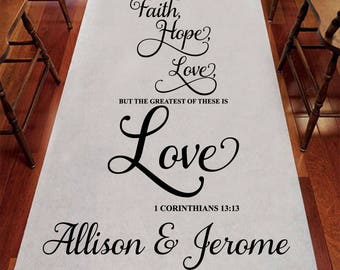 Faith,
Hope,
Love,
BUT THE GREATEST OF THESE IS
Love
1 CORINTHIANS 13:13
Allison & Jerome